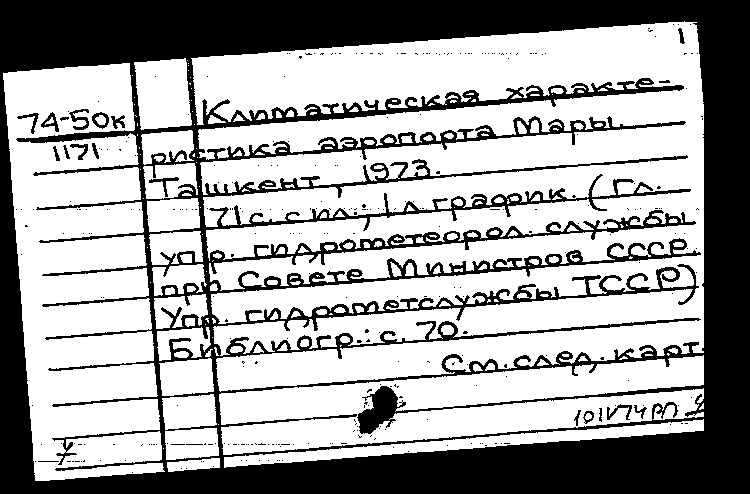 1
74-50к Климатическая характе-
1171 ристика аэропорта Мары.
Ташкент, 1973.
71 с. с ил.; 1 л. график. (Гл.
упр. гидрометеорол. службы
при Совете Министров СССР.
Упр. гидрометслужбы ТССР).
Библиогр.: с. 70.
См. след. карт.